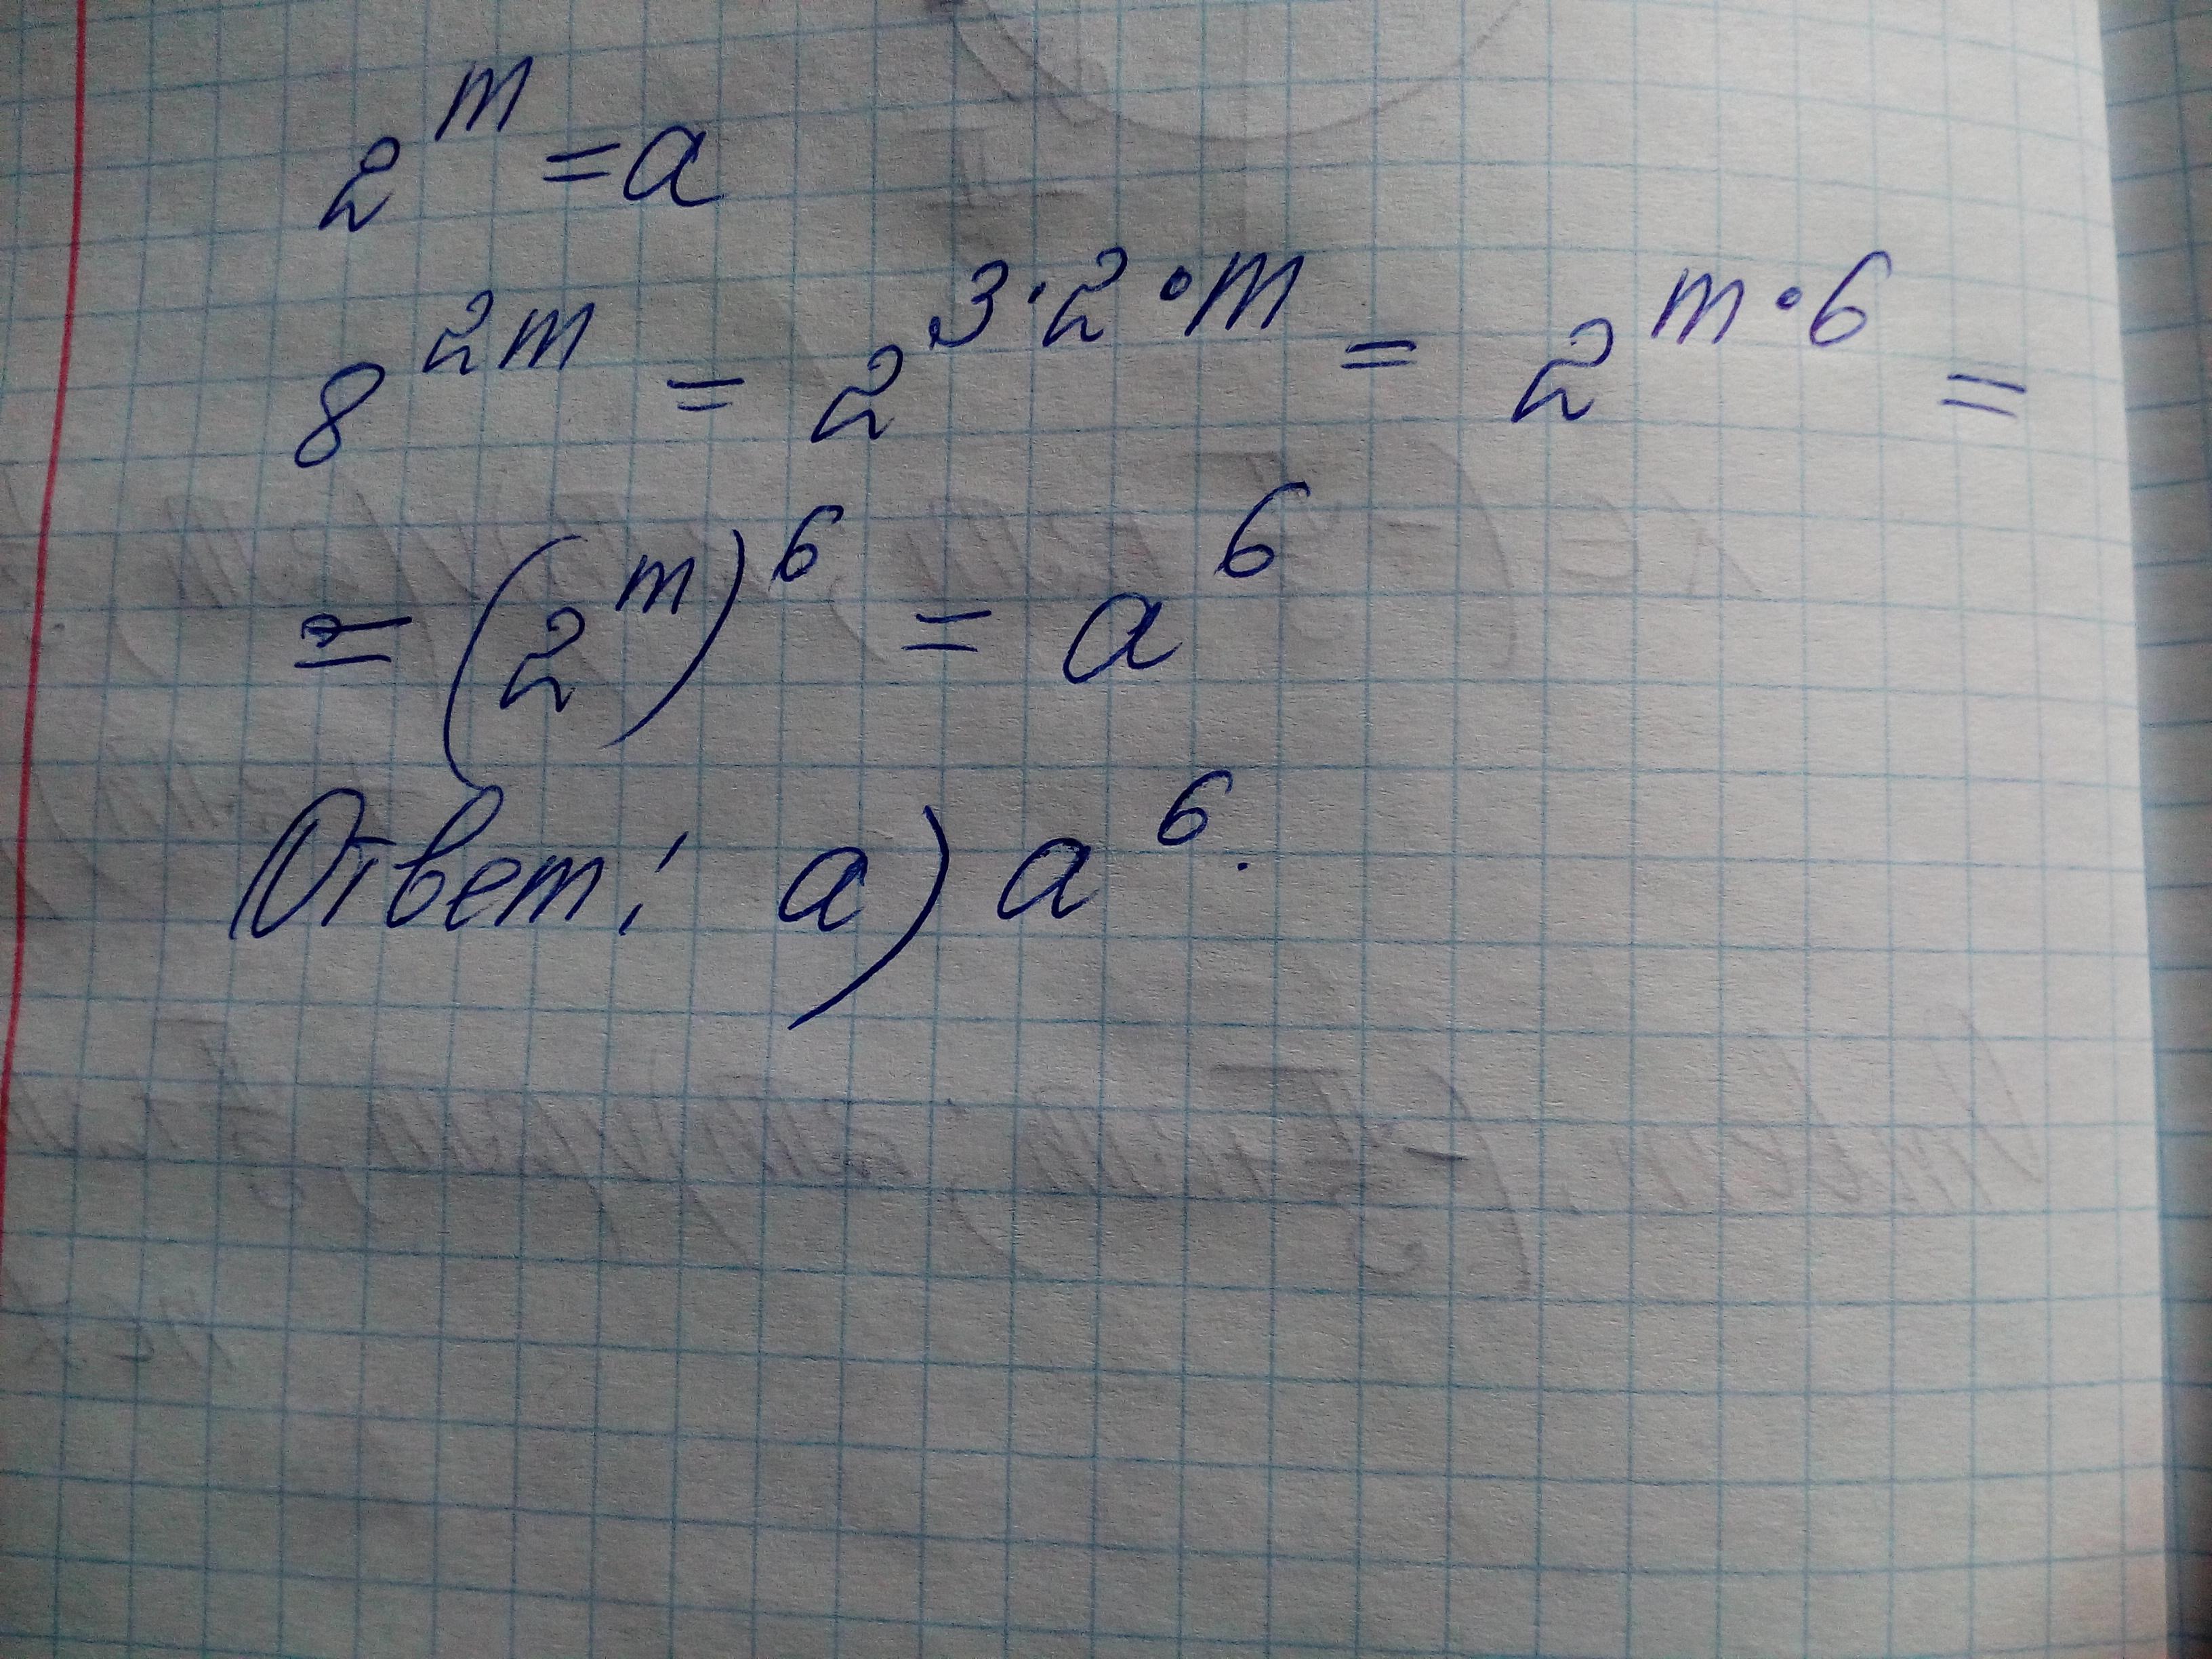 2^m = a
8^{2m} = 2^{3·2·m} = 2^{m·6} =
= (2^m)^6 = a^6
Ответ: а) a^6.